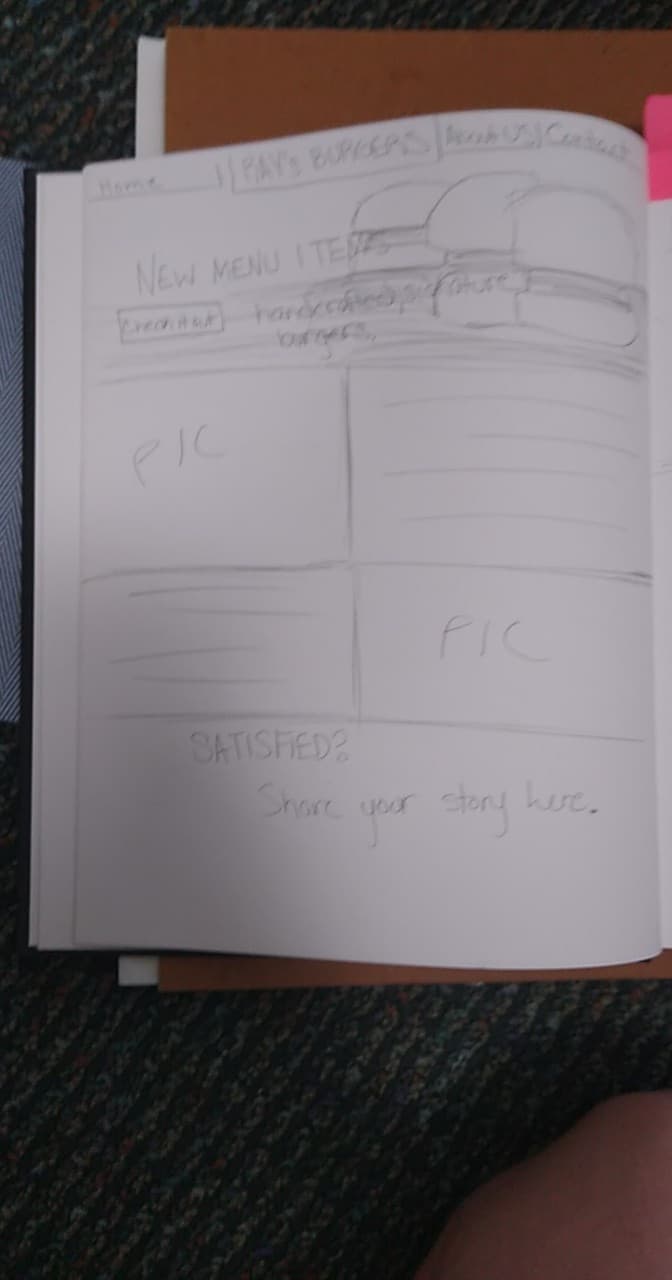 Home | RAY's BURGERS | About Us | Contact
NEW MENU ITEMS
Check it out handcrafted, signature
burgers.
PIC
PIC
SATISFIED?
Share your story here.